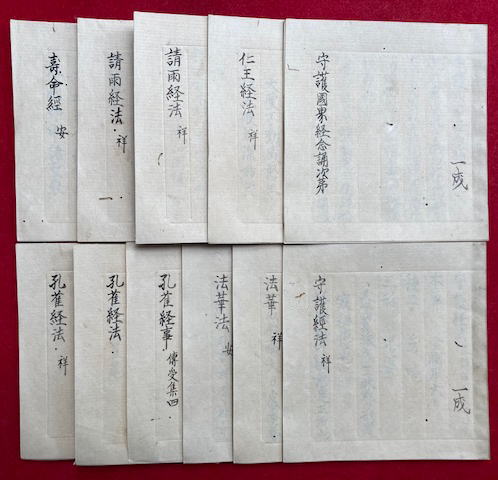 守護國界経念誦次第
一成
仁王経法 祥
請雨経法 祥
請雨経法・祥
一
壽命經 安
守護經法 祥
一成
法華 祥
法華法 安
孔雀経事 傳受集四
孔雀経法・
孔雀経法・祥